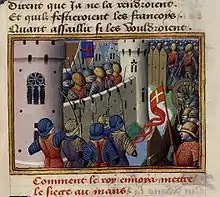 Dirent que Ja ne la rendroient.
Et quilz festieroient les francoys.
Quant assaillir si les Vouldroient.
Comment le roy envoya mettre
le siege au mans